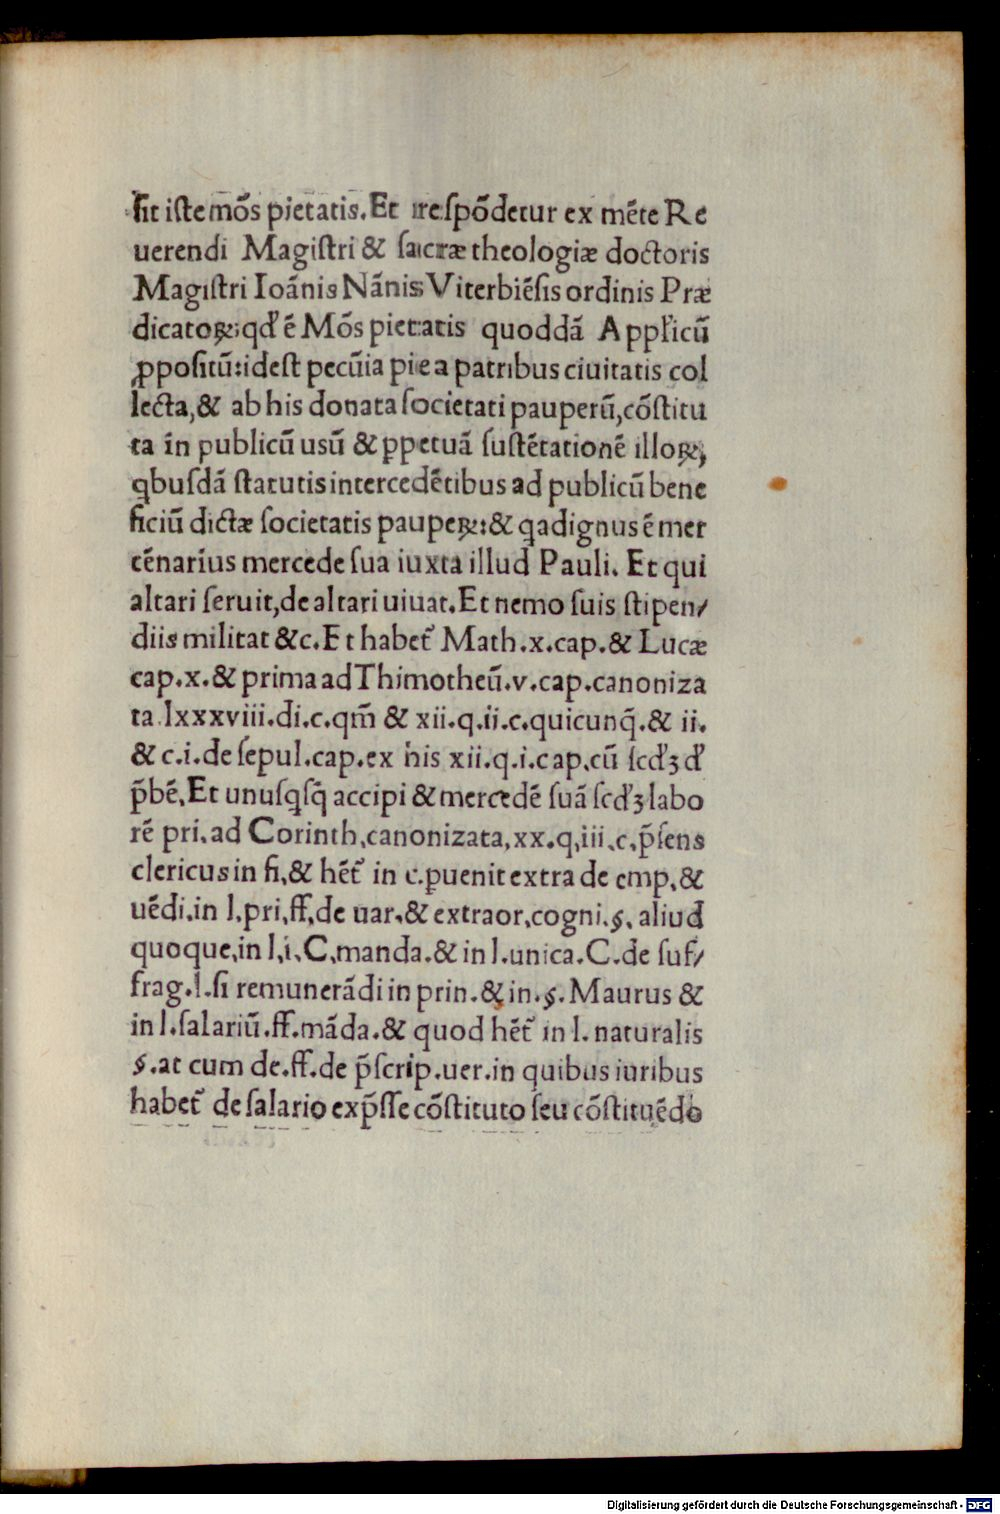 ſit iſte mõs pietatis. Et reſpõdetur ex mẽte Re
uerendi Magiſtri & ſacræ theologiæ doctoris
Magiſtri Ioãnis Nãnis Viterbiẽſis ordinis Præ
dicatoꝝ: qđ ẽ Mõs pietatis quoddã Apƚicũ
ꝓpoſitũ: ideſt pecũia pie a patribus ciuitatis col
lecta, & ab his donata ſocietati pauperũ, cõſtitu
ta in publicũ uſũ & ꝑpetuã ſuſtẽtationẽ illoꝝ,
qbuſdã ſtatutis intercedẽtibus ad publicũ bene
ficiũ dictæ ſocietatis paupeꝝ: & qa dignus ẽ mer
cẽnarius mercede ſua iuxta illud Pauli. Et qui
altari ſeruit, de altari uiuat. Et nemo ſuis ſtipen/
diis militat &c. Et habet᷑ Math.x.cap. & Lucæ
cap.x. & prima ad Thimotheũ.v.cap.canoniza
ta lxxxviii.di.c.qm̃ & xii.q.ii.c.quicunq̃. & ii.
& c.i.de ſepul.cap.ex his xii.q.i.cap.cũ ſcđꝫ đ
p̃bẽ. Et unuſqſq̃ accipi & mercedẽ ſuã ſcđꝫ labo
rẽ pri.ad Corinth.canonizata,xx.q.iii.c.p̃ſens
clericus in fi, & hẽt᷑ in c.ꝑuenit extra de emp, &
uẽdi.in l.pri,ff,de uar, & extraor,cogni.§. aliud
quoque,in l,i,C,manda. & in l.unica.C.de ſuf/
frag.l.ſi remunerãdi in prin. & in.§. Maurus &
in l.ſalariũ.ff.mãda. & quod hẽt᷑ in l. naturalis
§.at cum de.ff.de p̃ſcrip.uer.in quibus iuribus
habet᷑ de ſalario exp̃ſſe cõſtituto ſeu cõſtituẽdo
Digitalisierung gefördert durch die Deutsche Forschungsgemeinschaft - DFG